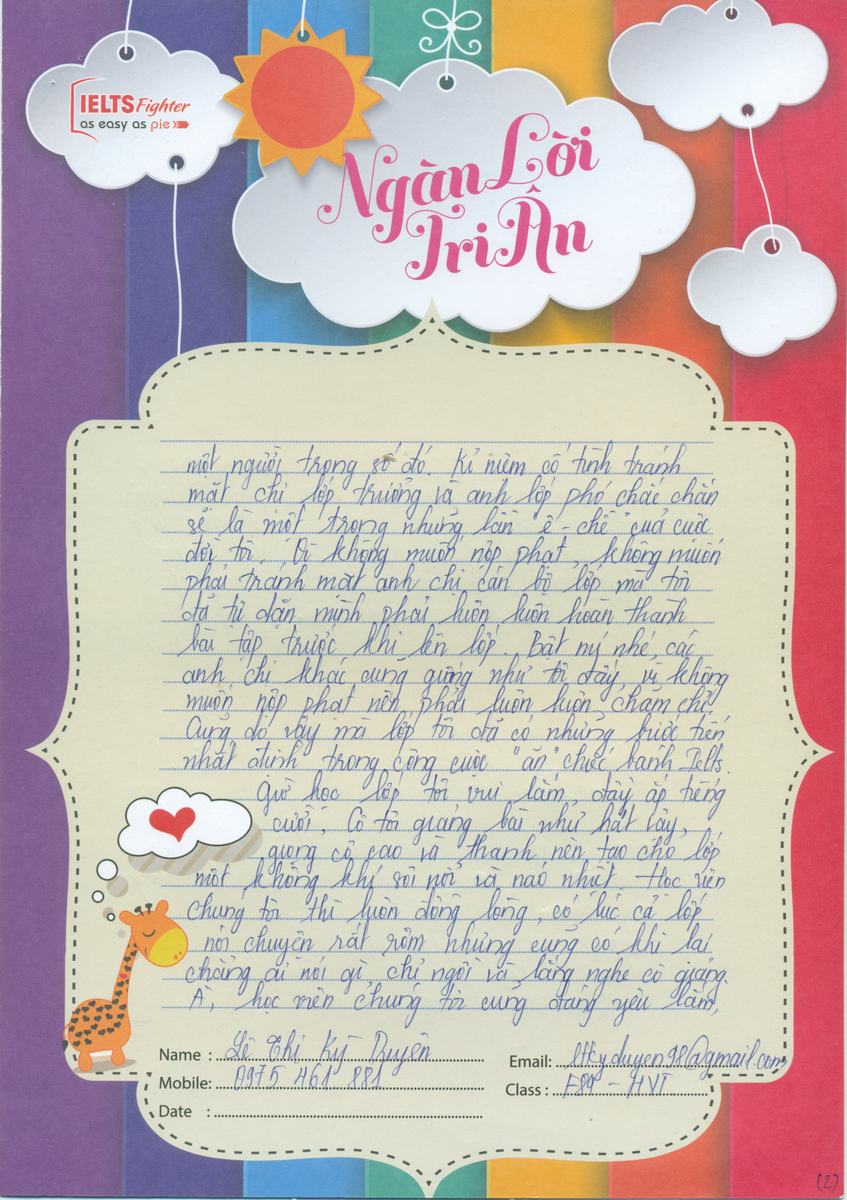 IELTS Fighter
as easy as pie
Ngàn Lời
Tri Ân
một người trong số đó. Kỉ niệm cố tình tránh
mặt chị lớp trưởng và anh lớp phó chắc chắn
sẽ là một trong những lần "ê-chề" cuả cuộc
đời tôi. Vì không muốn nộp phạt, không muốn
phải tránh mặt anh chị cán bộ lớp mà tôi
đã tự dặn mình phải luôn luôn hoàn thành
bài tập trước khi lên lớp. Bật mý nhé, các
anh chị khác cũng giống như tôi đấy, vì không
muốn nộp phạt nên phải luôn luôn chăm chỉ.
Cũng do vậy mà lớp tôi đã có những bước tiến
nhất định trong công cuộc "ăn" chiếc bánh Ielts.
Giờ học lớp tôi vui lắm, đầy ắp tiếng
cười. Cô tôi giảng bài như hát vậy,
giọng cô cao và thanh nên tạo cho lớp
một không khí sôi nổi và náo nhiệt. Học viên
chúng tôi thì luôn đồng lòng, có lúc cả lớp
nói chuyện rất rôm nhưng cũng có khi lại
chẳng ai nói gì, chỉ ngồi và lắng nghe cô giảng.
À, học viên chúng tôi cũng đáng yêu lắm,
Name : Lê Thị Kỳ Duyên
Email: ltkyduyen98@gmail.com
Mobile: 0975 461 881
Class : F89 - HVT
Date :
(2)